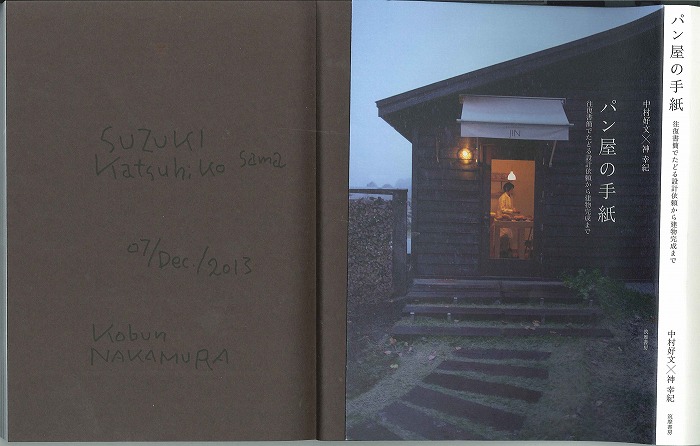 SUZUKI
Katsuhiko sama
07/Dec./2013
Kobun
NAKAMURA
パン屋の手紙
往復書簡でたどる設計依頼から建物完成まで
中村好文×神幸紀
JIN
筑摩書房
パン屋の手紙
往復書簡でたどる設計依頼から建物完成まで
中村好文×神幸紀
筑摩書房